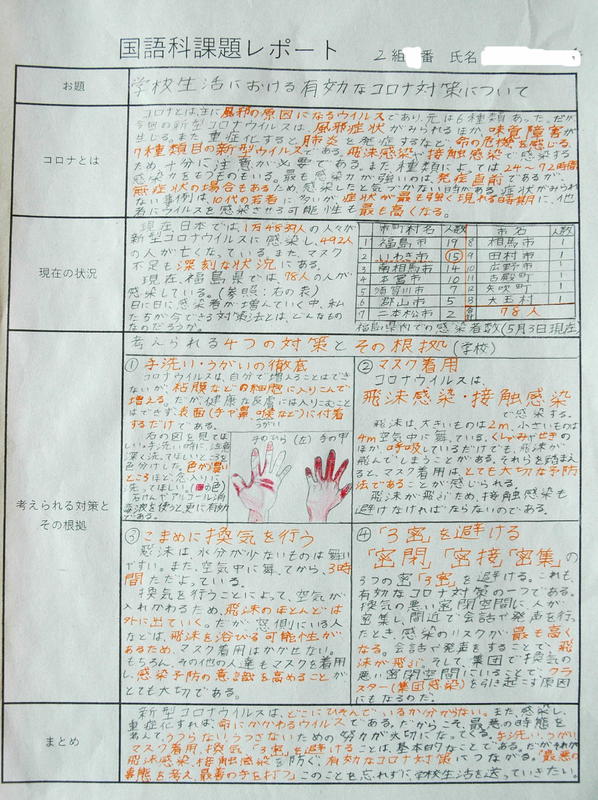 国語科課題レポート
2組 番 氏名
お題
学校生活における有効なコロナ対策について
コロナとは
コロナとは、主に風邪の原因になるウイルスであり、元は6種類あった。だが
今回の新型コロナウイルスは、風邪症状がみられるほか、味覚障害が
生じる。また、重症化すると肺炎を発症するなど、命の危機を感じる、
7種類目の新型ウイルスである。飛沫感染や接触感染で感染する
ため、十分に注意が必要である。また、種類によっては、24〜72時間
感染力をもつものもいる。最も感染力が強いのは、発症直前であるが
無症状の場合もあるため、感染したと気づかない時がある。症状がみられ
ない事例は、10代の若者に多いが、症状が最も強く現れる時期に、他
者にウイルスを感染させる可能性も最も高くなる。
現在の状況
現在、日本では、1万4839人の人々が
新型コロナウイルスに感染し、492人
の人が亡くなっている。また、マスク
不足も深刻な状況にある。
現在、福島県では、78人の人が
感染している。(参照:右の表)
日に日に感染者が増えていく中、私た
ちが今できる対策法とは、どんなもの
なのだろうか。
市町村名 人数 市名 人数
1 福島市 19 8 相馬市 1
2 いわき市 15 9 田村市 1
3 南相馬市 14 10 広野市 1
4 本宮市 10 11 古殿町 1
5 須賀川市 7 12 矢吹町 1
6 郡山市 5 13 大玉村 1
7 二本松市 2 合計 78人
福島県内での感染者数(5月3日現在)
考えられる対策と
その根拠
考えられる4つの対策とその根拠(学校)
① 手洗い・うがいの徹底
コロナウイルスは、自分で増えることはでき
ないが、粘膜などの細胞に入りこんで
増える。だが、健康な皮膚には入りこむこと
はできず、表面(手や鼻、喉など)に付着
するだけである。
うがい
右の図を見てほ
しい。手洗い時に、注意
深く洗ってほしいところを
色分けした。色が濃い
ところほど、念入りに
洗ってほしい。
石けんやアルコール消
毒液を使うと更に有効
がある。
手のひら(左) 手の甲
② マスク着用
コロナウイルスは、
飛沫感染・接触感染
で感染する。
飛沫は、大きいものは2m、小さいものは
4m空気中に舞っている。くしゃみやせきの
ほか、呼吸しているだけでも、飛沫が
飛んでしまうことがある。それらを踏まえ
ると、マスク着用は、とても大切な予防
法であることが感じられる。
飛沫が飛ぶため、接触感染も
避けなければならないのである。
③ こまめに換気を行う
飛沫は、水分が少ないものは舞い
やすい。また、空気中に舞ってから、3時
間ただよっている。
換気を行うことによって、空気が
入れかわるため、飛沫のほとんどは
外に出ていく。だが、窓側にいる人
などは、飛沫を浴びる可能性が
あるため、マスク着用はかかせない。
もちろん、その他の人達もマスクを着用
し、感染予防の意識を高めることが
とても大切である。
④ 「3密」を避ける
「密閉」「密接」「密集」の
3つの密「3密」を避ける。これも、
有効なコロナ対策の一つである。
換気の悪い密閉空間に、人が
密集し、間近で会話や発声を行っ
たとき、感染のリスクが最も高く
なる。会話や発声をすることで、飛
沫が飛ぶ。そして、集団で換気の
悪い密閉空間にいることで、クラ
スター(集団感染)を引き起こす原因
にもなるのだ。
まとめ
新型コロナウイルスは、どこにひそんでいるか分からない。また、感染し、
重症化すれば、命にかかわるウイルスである。だからこそ、最悪の時態を
考えて、うつらない、うつさないための努力が大切になってくる。手洗い、うがい、
マスク着用、換気、「3密」を避けることは、基本的なことである。だが、それが
飛沫感染、接触感染を防ぐ、有効なコロナ対策につながる。「最悪の
事態を考え、最善の手を打つ」このことを忘れずに、学校生活を送っていきたい。